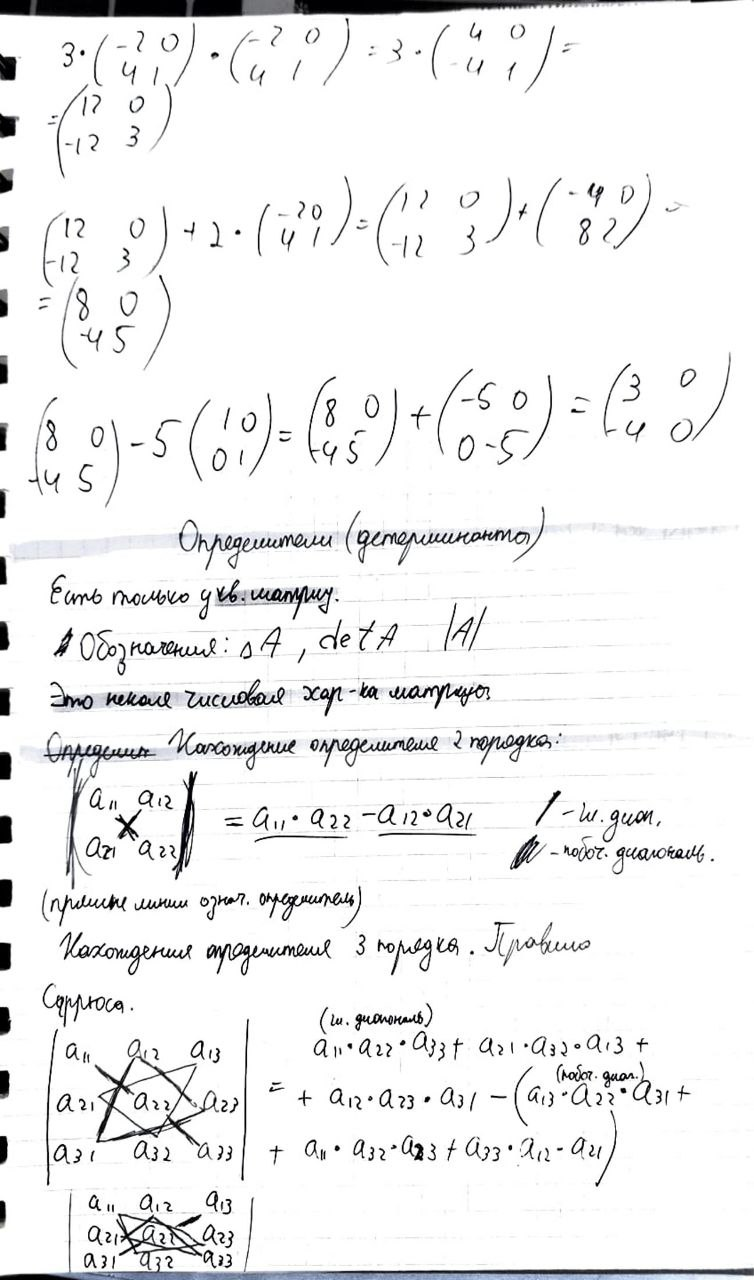 3·(-2 0 4 1)·(-2 0 4 1)=3·(4 0 -4 1)=
=(12 0 -12 3)
(12 0 -12 3)+2·(-2 0 4 1)=(12 0 -12 3)+(-4 0 8 2)=
=(8 0 -4 5)
(8 0 -4 5)-5(1 0 0 1)=(8 0 -4 5)+(-5 0 0 -5)=(3 0 -4 0)
Определители (детерминанты)
Есть только у кв. матриц.
Обозначения: △A, det A |A|
Это некая числовая хар-ка матрицы
Нахождение определителя 2 порядка:
|a11 a12 a21 a22| = a11·a22-a12·a21
- гл. диаг.
- побоч. диагональ.
(прямые линии означ. определитель)
Нахождения определителя 3 порядка. Правило
Саррюса.
(гл. диагональ)
|a11 a12 a13 a21 a22 a23 a31 a32 a33|
a11·a22·a33+ a21·a32·a13 +
(побоч. диаг.)
= + a12·a23·a31 -(a13·a22·a31+
+ a11·a32·a23+a33·a12·a21)
|a11 a12 a13
a21 a22 a23
a31 a32 a33|